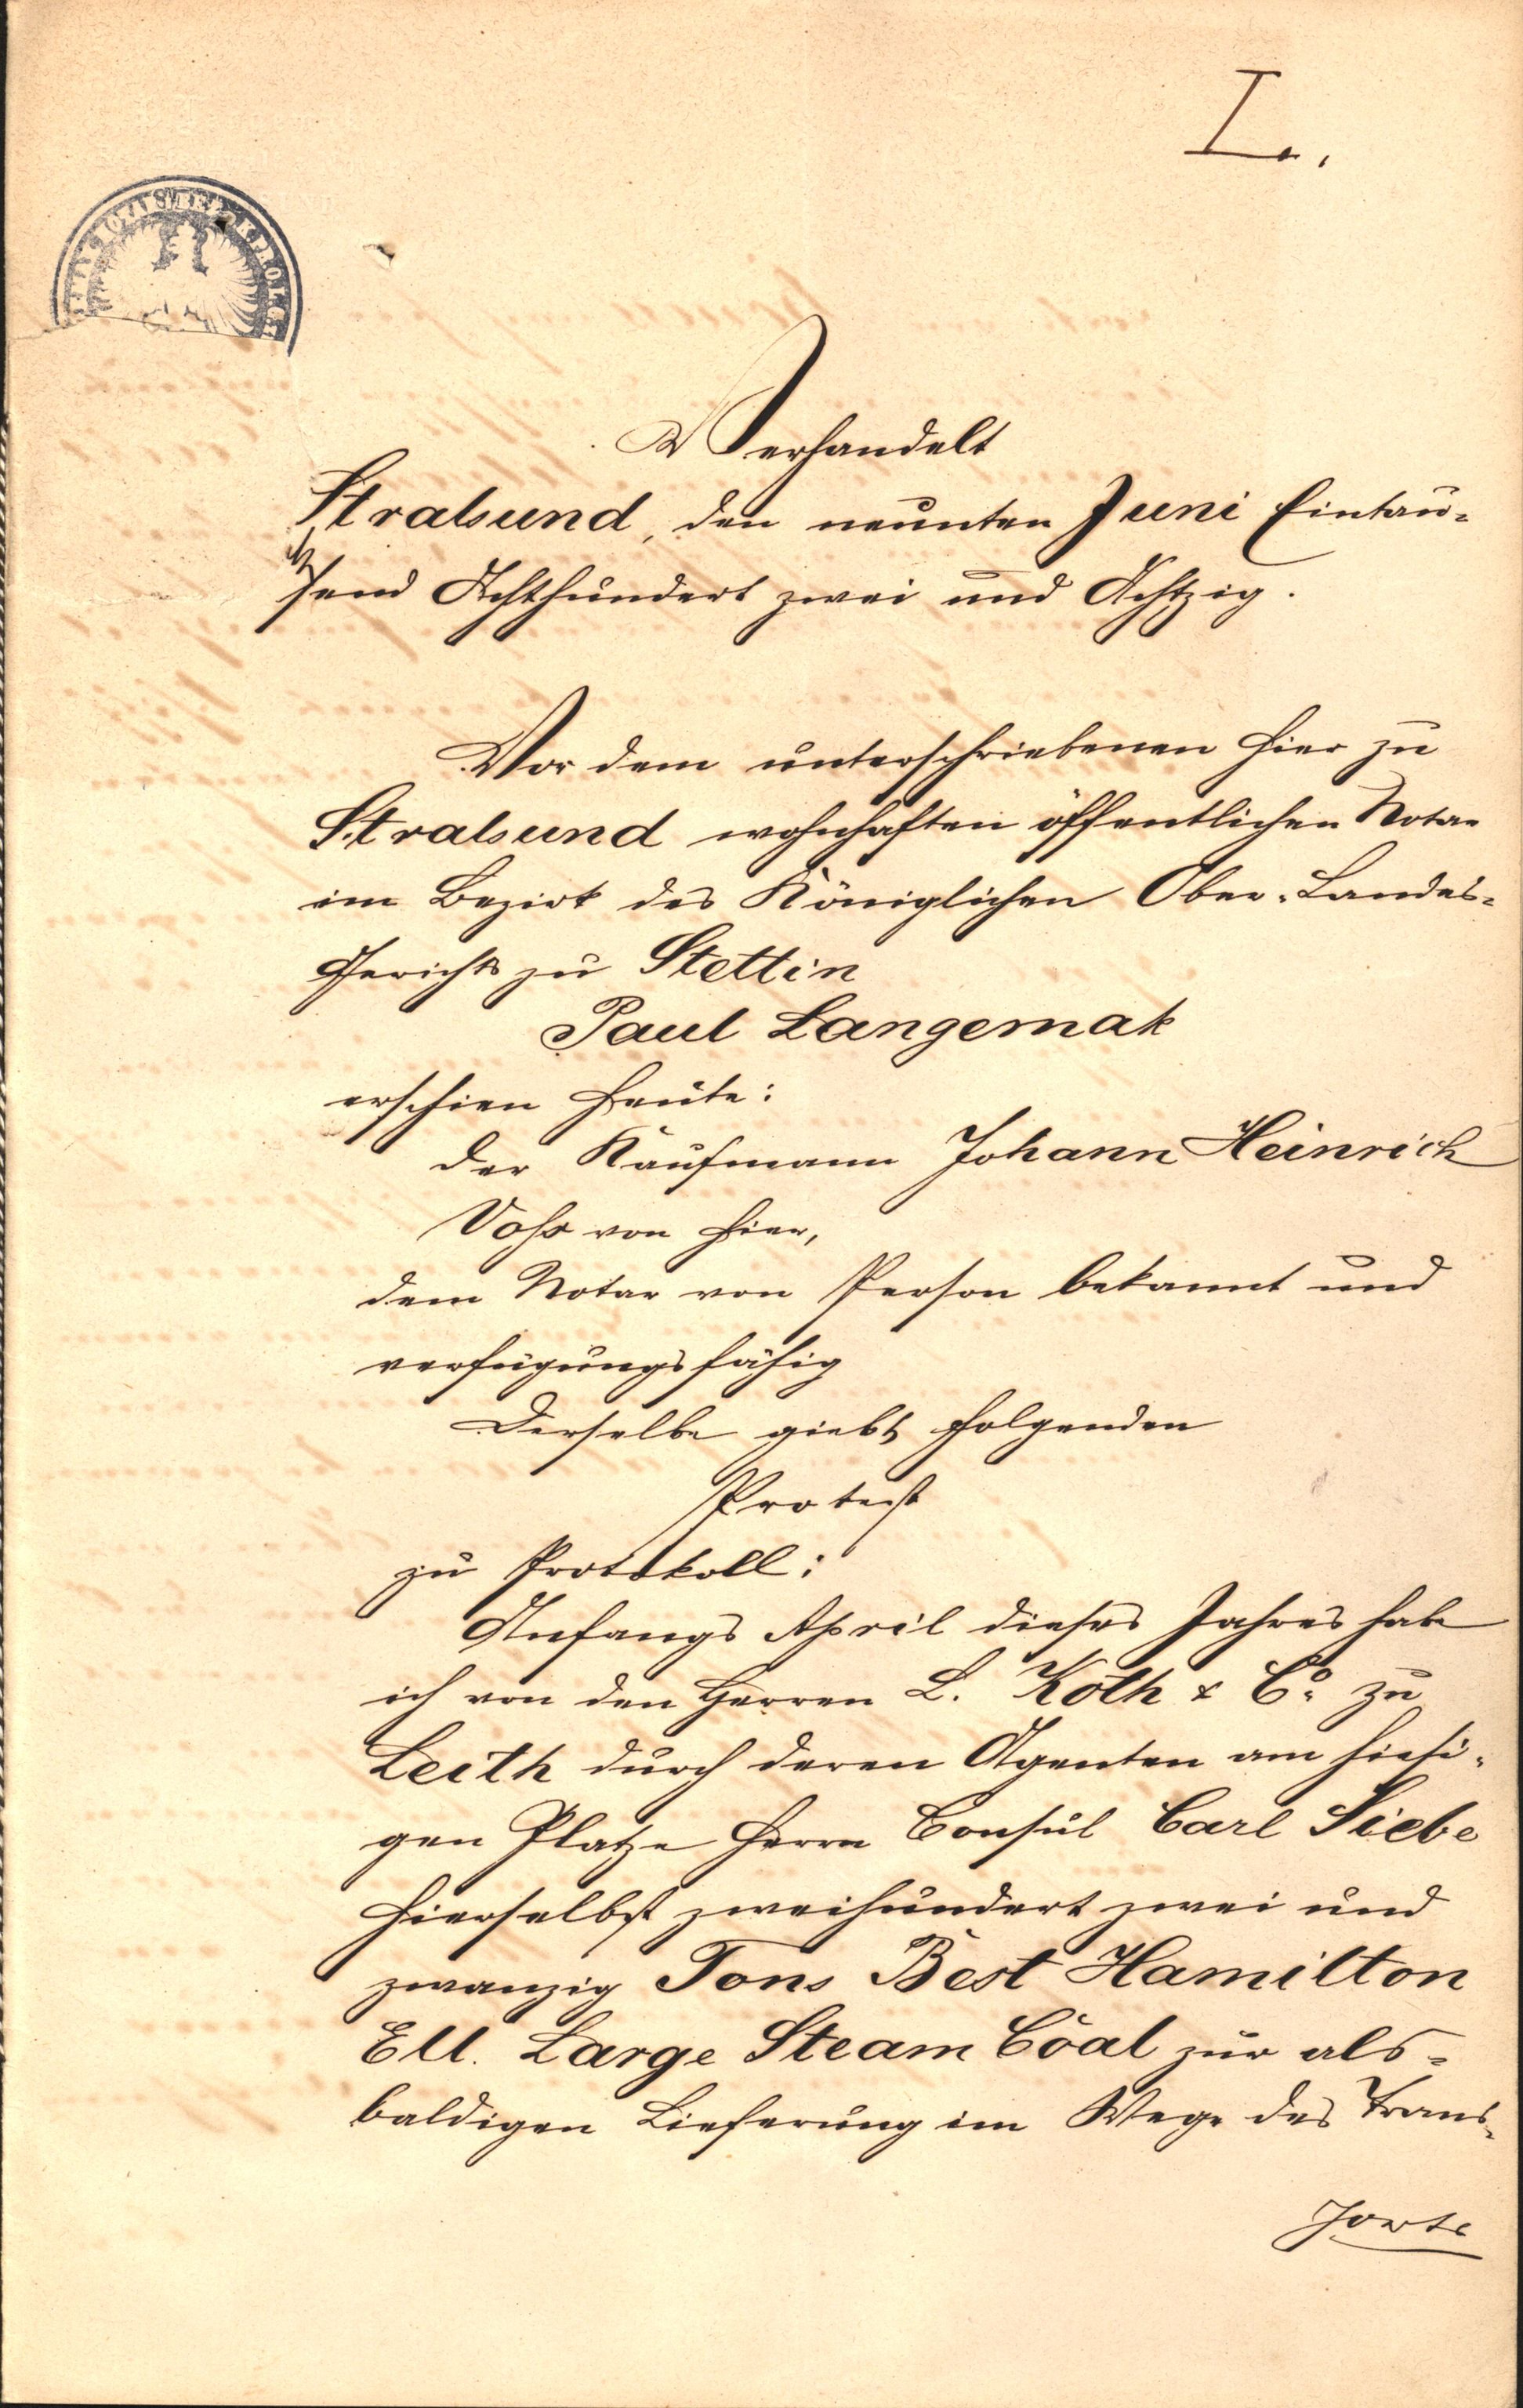 I.
Verhandelt
Stralsund, den neunten Juni Eintau-
send Achthundert zwei und Achtzig.
Vor dem unterschriebenen hier zu
Stralsund wohnhaften öffentlichen Notar
im Bezirk des Königlichen Ober-Landes-
Gerichts zu Stettin
Paul Langemak
erschien heute:
der Kaufmann Johann Heinrich
Voß von hier,
dem Notar von Person bekannt und
verfügungsfähig
Derselbe giebt folgenden
Protest
zu Protokoll:
Anfangs April dieses Jahres habe
ich von den Herren L. Koth & Co. zu
Leith durch deren Agenten am hiesi-
gen Platze Herrn Consul Carl Siebe
hierselbst zweihundert zwei und
zwanzig Tons Best Hamilton
Ell. Large Steam Coal zur als-
baldigen Lieferung im Wege des Trans-